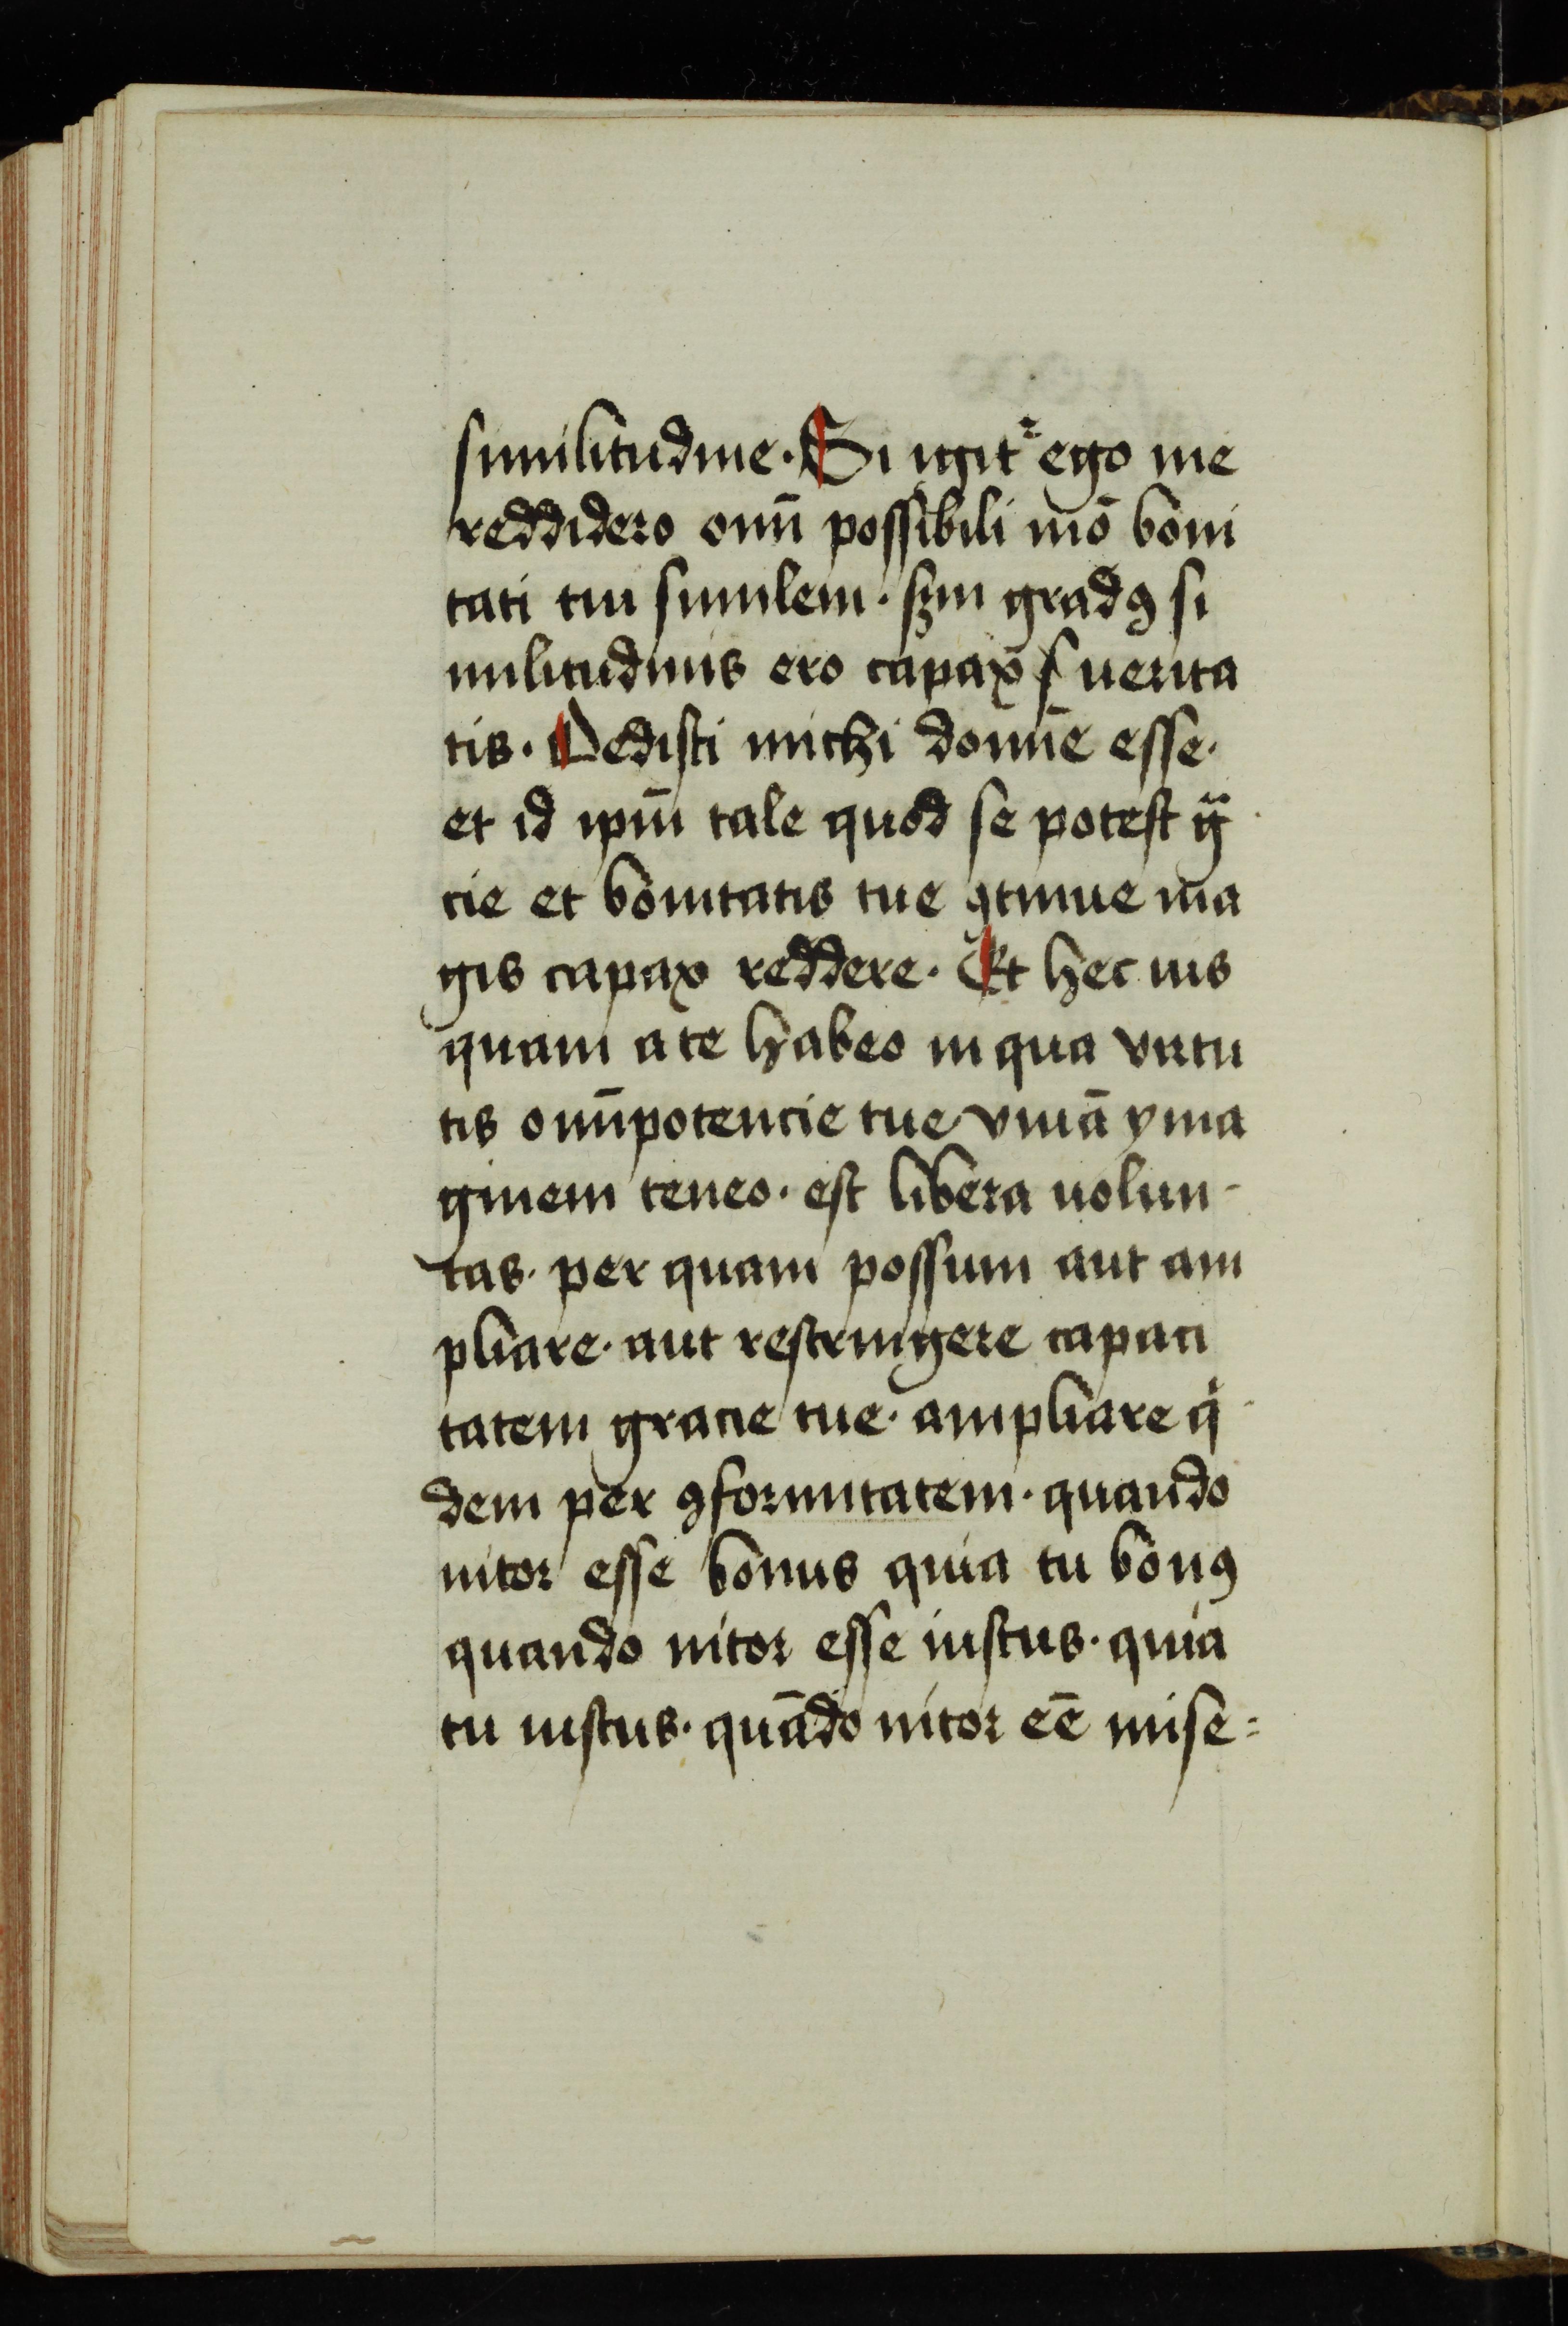 similitudine. Si igit᷑ ego me
reddidero om̄i possibili mō boni
tati tui similem. scḋm gradꝯ si
militudinis ero capax uerita
tis. Dedisti michi domīe esse.
et id ipm̄ tale quod se potest gͣ
cie et bonitatis tue ꝯtinue ma
gis capax reddere. Et hec uis
quam a te habeo in qua virtu
tis om̄ipotencie tue viuā yma
ginem teneo. est libera uolun-
tas. per quam possum aut am
pliare. aut restringere capaci
tatem gracie tue. ampliare qͥ
dem per ꝯformitatem. quando
nitor esse bonus quia tu bonꝯ
quando nitor esse iustus. quia
tu iustus. quādo nitor eē mise=